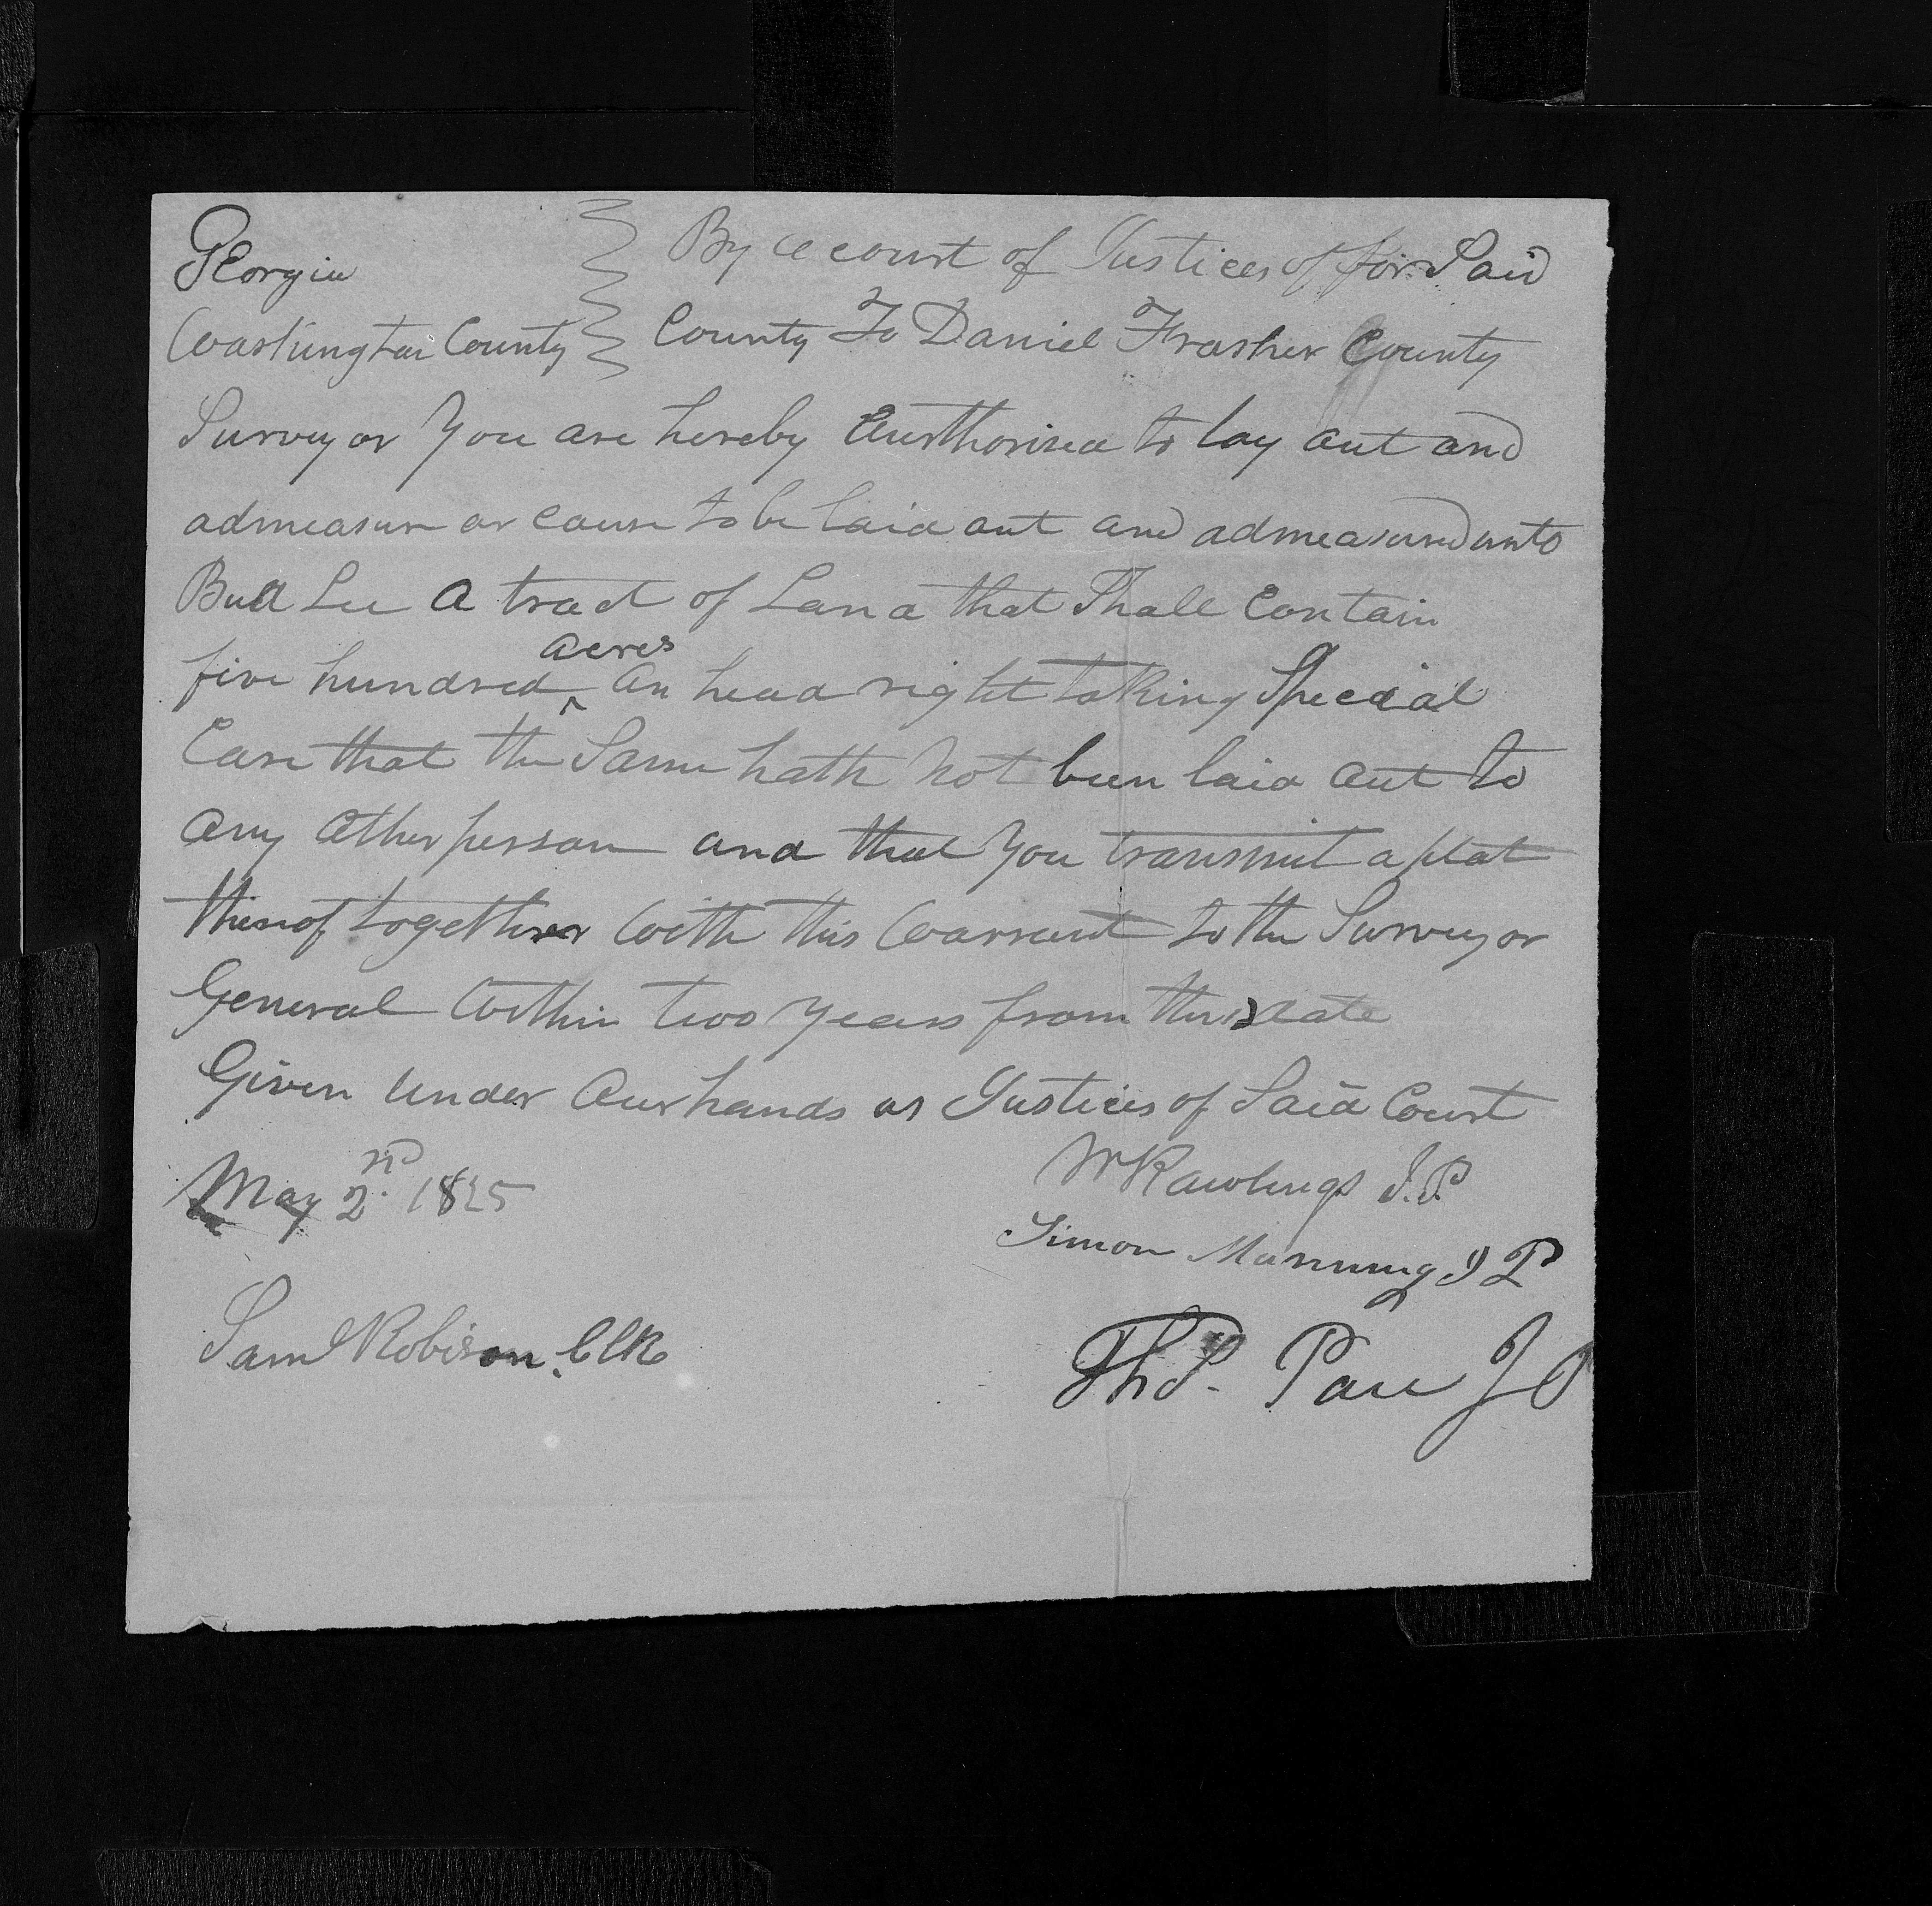 Georgia By a court of Justices of for Said
Washington County County To Daniel Frasher County
Surveyor You are hereby Authorised to lay out and
admeasure or cause to be laid out and admeasured unto
Lee A tract of Land that Shall Contain
five hundred acres On head right taking Special
Care that the Same hath not been laid out to
any other person and that You transmit a plat
thereof together with this Warrant to the Surveyor
General within two years from this date
Given Under Our hands as Justices of Said Court
May 2nd 1825 W Rawlings J.P.
Simon Manning J P
Saml Robison Clk
Th. P. J P